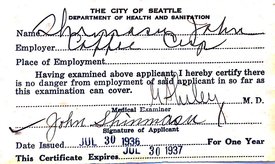 THE CITY OF SEATTLE
DEPARTMENT OF HEALTH AND SANITATION
Name Shinmasu John
Employer Coffee Cup
Place of Employment
Having examined above applicant, I hereby certify there
is no danger from employment of said applicant in so far as
this examination can cover.
M. D.
Medical Examiner
John Shinmasu
Signature of Applicant
Date Issued JUL 30 1936 For One Year
This Certificate Expires JUL 30 1937